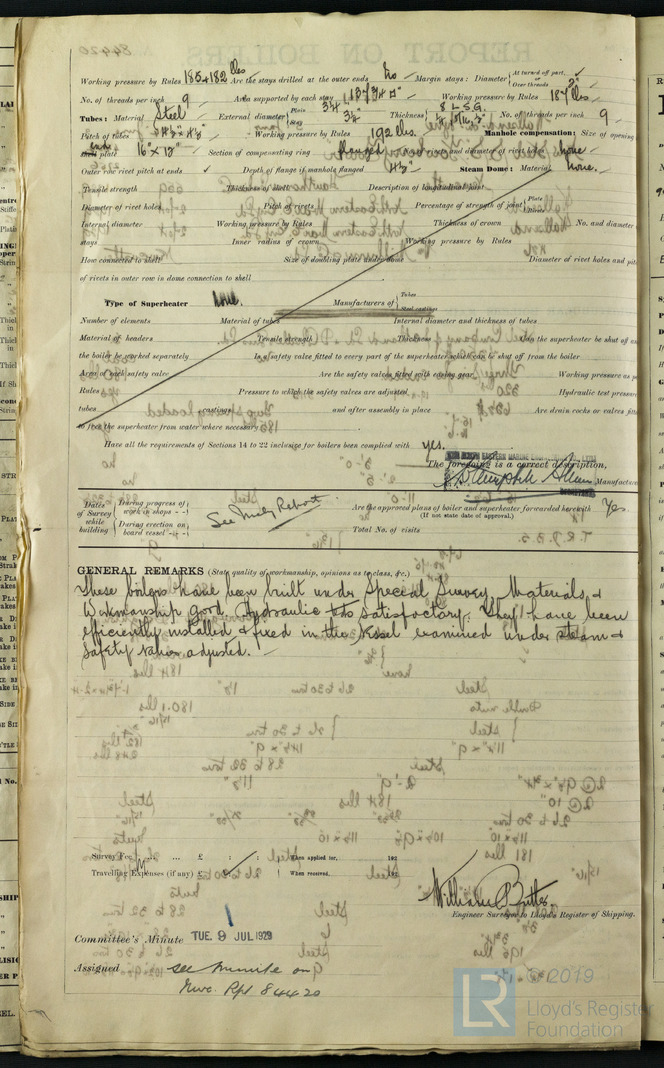 Working pressure by Rules 185 + 182 lbs Are the stays drilled at the outer ends No Margin stays: Diameter { At turned off part, or Over threads 2"
No. of threads per inch 9 Area supported by each stay Working pressure by Rules 187 lbs
Tubes: Material Steel External diameter { Plain 3 1/4" Stay 3 1/4" Thickness { 8 L.S.G. No. of threads per inch 9
Pitch of tubes 4 1/2" x 4 1/2" Working pressure by Rules 192 lbs. Manhole compensation: Size of opening
end shell plate 16" x 12" Section of compensating ring flanged No. of rivets and diameter of rivet holes none
Outer row rivet pitch at ends ✓ Depth of flange if manhole flanged Steam Dome: Material none.
Tensile strength Thickness of shell Description of longitudinal joint
Diameter of rivet holes Pitch of rivets Percentage of strength of joint { Plate Rivets
Internal diameter Working pressure by Rules Thickness of crown No. and diameter of
stays Inner radius of crown Working pressure by Rules
How connected to shell Size of doubling plate under dome Diameter of rivet holes and pitch
of rivets in outer row in dome connection to shell
Type of Superheater none. Manufacturers of { Tubes Steel castings
Number of elements Material of tubes Internal diameter and thickness of tubes
Material of headers Tensile strength Thickness Can the superheater be shut off and
the boiler be worked separately Is a safety valve fitted to every part of the superheater which can be shut off from the boiler
Area of each safety valve Are the safety valves fitted with easing gear Working pressure as per
Rules Pressure to which the safety valves are adjusted Hydraulic test pressure
tubes castings and after assembly in place Are drain cocks or valves fitted
to free the superheater from water where necessary
Have all the requirements of Sections 14 to 22 inclusive for boilers been complied with yes.
The foregoing is a correct description,
Manufacturer
Dates of Survey while building { During progress of work in shops - - During erection on board vessel - - - See Mchy Report. Are the approved plans of boiler and superheater forwarded herewith Yes.
(If not state date of approval.)
Total No. of visits
GENERAL REMARKS (State quality of workmanship, opinions as to class, &c.)
These boilers have been built under Special Survey. Materials &
Workmanship good. Hydraulic tests satisfactory. They have been
efficiently installed & fixed in the Vessel examined under steam &
Safety Valves adjusted.
Survey Fee ... ... £ : : When applied for, 192
Travelling Expenses (if any) £ : : When received, 192
William Butter.
Engineer Surveyor to Lloyd's Register of Shipping.
Committee's Minute TUE. 9 JUL 1929
Assigned see minute on
Nwc. Rpt 84420
© 2019
LR Lloyd's Register
Foundation